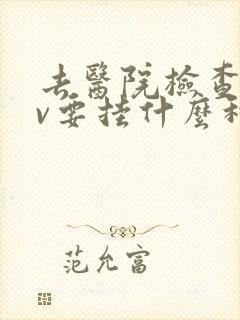 去醫院檢查
v要挂什麼科
范允富